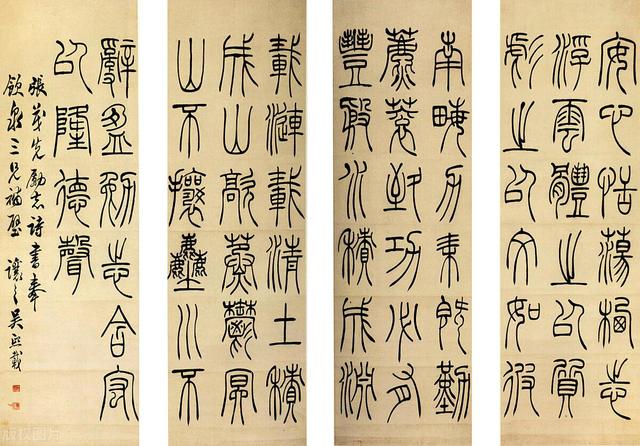 安心恬蕩栖志
浮雲體之以質
彪之以文如彼
南畮力耒既勤
藨蓘致功必有
豐殷水積成淵
載漣載清土積
成山歊蒸鬱冥
山不攘塵川不
辭盈勉志含宏
以隆德聲
張茂先勵志詩書奉
飲泉三兄補壁 讓之吳熙載
版权图片